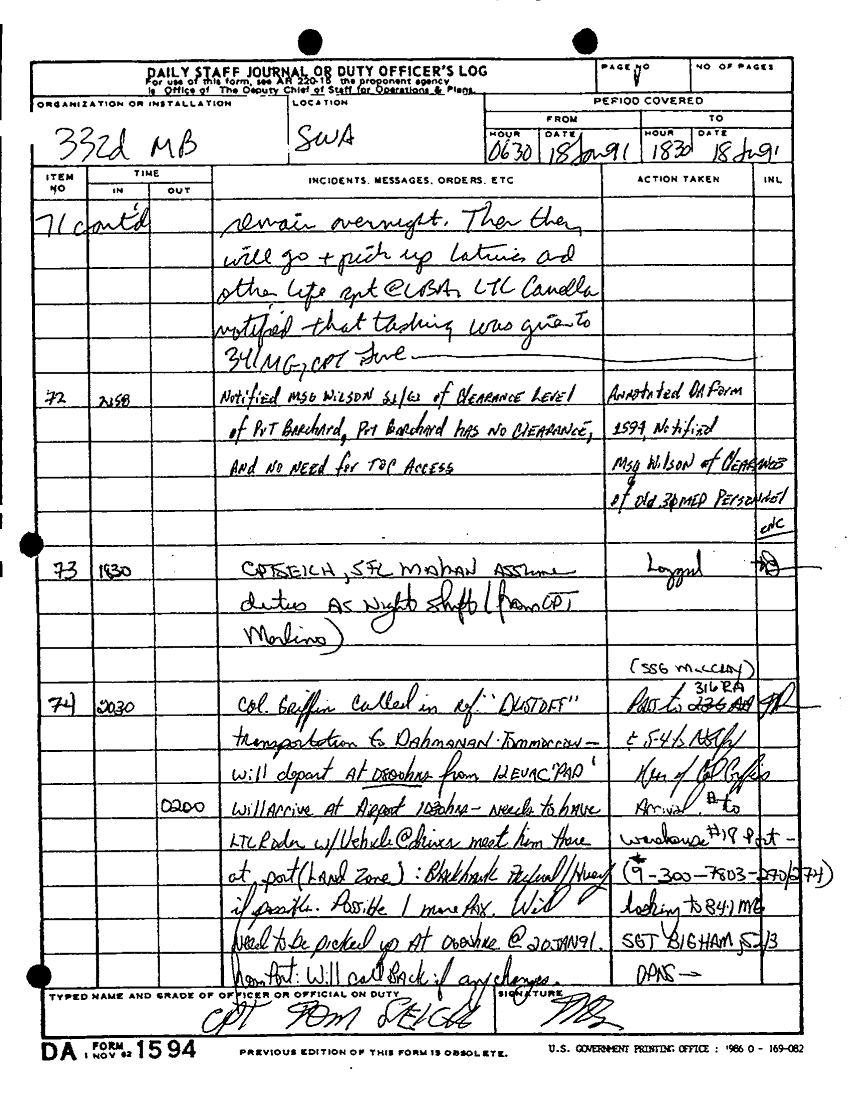 DAILY STAFF JOURNAL OR DUTY OFFICER'S LOG
For use of this form, see AR 220-15 the proponent agency
is Office of The Deputy Chief of Staff for Operations & Plans.
PAGE NO
NO OF PAGES
ORGANIZATION OR INSTALLATION
332d MB
LOCATION
SWA
PERIOD COVERED
FROM
TO
HOUR
DATE
HOUR
DATE
0630
18 Jan 91
1830
18 Jan 91
ITEM NO
TIME
IN
OUT
INCIDENTS, MESSAGES, ORDERS, ETC
ACTION TAKEN
INL
71 cont'd
remain overnight. Then they
will go + pick up latrines and
other life spt @ LBA. LTC Canella
notified that tasking was given to
341 MG, CPT
72
Notified MSG WILSON of CLEARANCE LEVEL
of PVT BARCHARD, PVT BARCHARD HAS NO CLEARANCE,
AND NO NEED for TOC ACCESS
Annotated DA Form
1594, Notified
MSG Wilson of CLEARANCE
of Old MED PERSONNEL
73
1830
CPT SEICH, SFC MAHAN ASSUME
duties AS Night Shift (from CPT
Merlino)
Logged
(SSG McCLOY)
74
2030
Col. Griffin called in ref: "DUSTOFF"
transportation to DAHMANAN Tommorrow -
will depart AT 0800hrs from 12 EVAC 'PAD'
316 RA
Notify
Arrival. to
0200
Will Arrive at Airport 1030hrs - Needs to have
LTC Rader w/Vehicle @ driver meet him there
at port (Land Zone) : Blackhawk Preferred/Huey
if possible. Possible 1 more Pax. Will
Need to be picked up AT @ 20 JAN 91.
from Port: Will call Back if any changes.
warehouse #18 Port -
(9-300-7803-270/274)
looking to 341 MG
SGT BIGHAM, S2/3
OPNS →
TYPED NAME AND GRADE OF OFFICER OR OFFICIAL ON DUTY
CPT TOM SEICH
SIGNATURE
DA FORM 1 NOV 62 1594
PREVIOUS EDITION OF THIS FORM IS OBSOLETE.
U.S. GOVERNMENT PRINTING OFFICE : 1986 O - 169-082